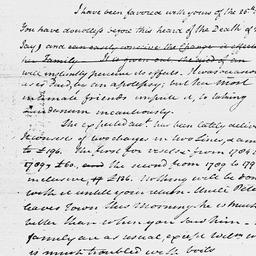 I have been favored with yours of the 25th
You have doubtless ere this heard of the Death of
Jay) and can easily conceive the change it effects
her Family. It is given out the said of an
will instantly perceive its effects. It was occasion
as is said, by an apoplexy; but her most
intimate friends impute it, to taking
Laudanum incautiously.
The expected acct. has been lately deliver
It consists of two charges in two Lines, & am
to £196. The first for vessels from 1706 to
1709, £60. and the second from 1709 to 179
inclusive £136. Nothing will be don
with it until your return. Uncle Pete
leaves Town this Morning. he is much
better than when you saw him
family are as usual, except
is much troubled with boils